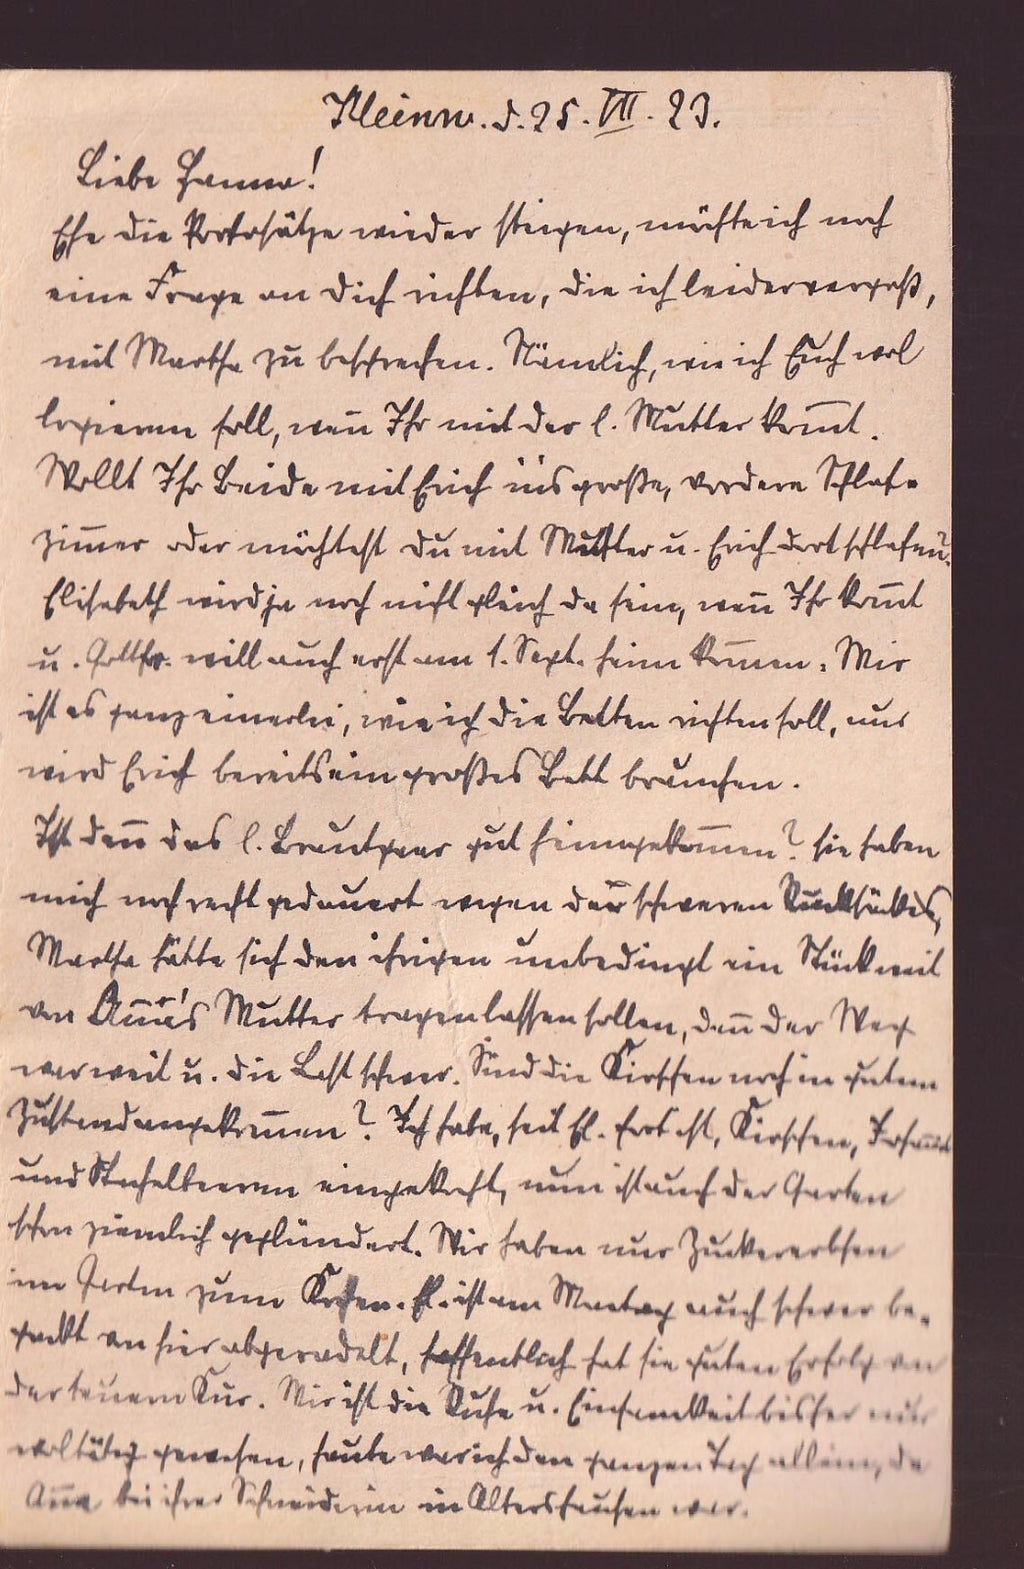 Kleinw. d. 25. VII. 23.
Liebe Hanna!
Ehe die Portosätze wieder steigen, möchte ich noch
eine Frage an Dich richten, die ich leider vergaß,
mit Martha zu besprechen. Nämlich, wie ich Euch wol
logieren soll, wen̄ Ihr mit der l. Mutter kom̄t.
Wollt Ihr Beide mit Erich ins große, vordere Schlaf-
zim̄er oder möchtest Du mit Mutter u. Erich dort schlafen?
Elisabeth wird ja noch nicht gleich da sein, wen̄ Ihr kom̄t
u. Gottfr. will auch erst am 1. Sept. heim kom̄en. Mir
ist es ganz einerlei, wie ich die Betten richten soll, nur
wird Erich bereits ein großes Bett brauchen.
Ist den̄ das l. Brautpaar gut heimgekom̄en? Sie haben
mich noch recht gedauert wegen der schweren Rucksäcke,
Martha hätte sich den ihrigen unbedingt ein Stück weit
von An̄as Mutter tragen lassen sollen, den̄ der Weg
war weit u. die Last schwer. Sind die Kirschen noch in gutem
Zustand angekom̄en? Ich habe, seit El. fort ist, Kirschen, Johan̄is
und Stachelbeeren eingekocht, nun ist auch der Garten
schon ziemlich geplündert. Wir haben nur Zuckererbsen
im Garten zum Kochen. El. ist am Montag auch schwer be-
packt von hier abgeradelt, hoffentlich hat sie guten Erfolg von
der teuern Kur. Mir ist die Ruhe u. Einsamkeit bisher nur
woltätig gewesen, heute war ich den ganzen Tag allein, da
An̄a bei ihrer Schneiderin in Altershausen war.